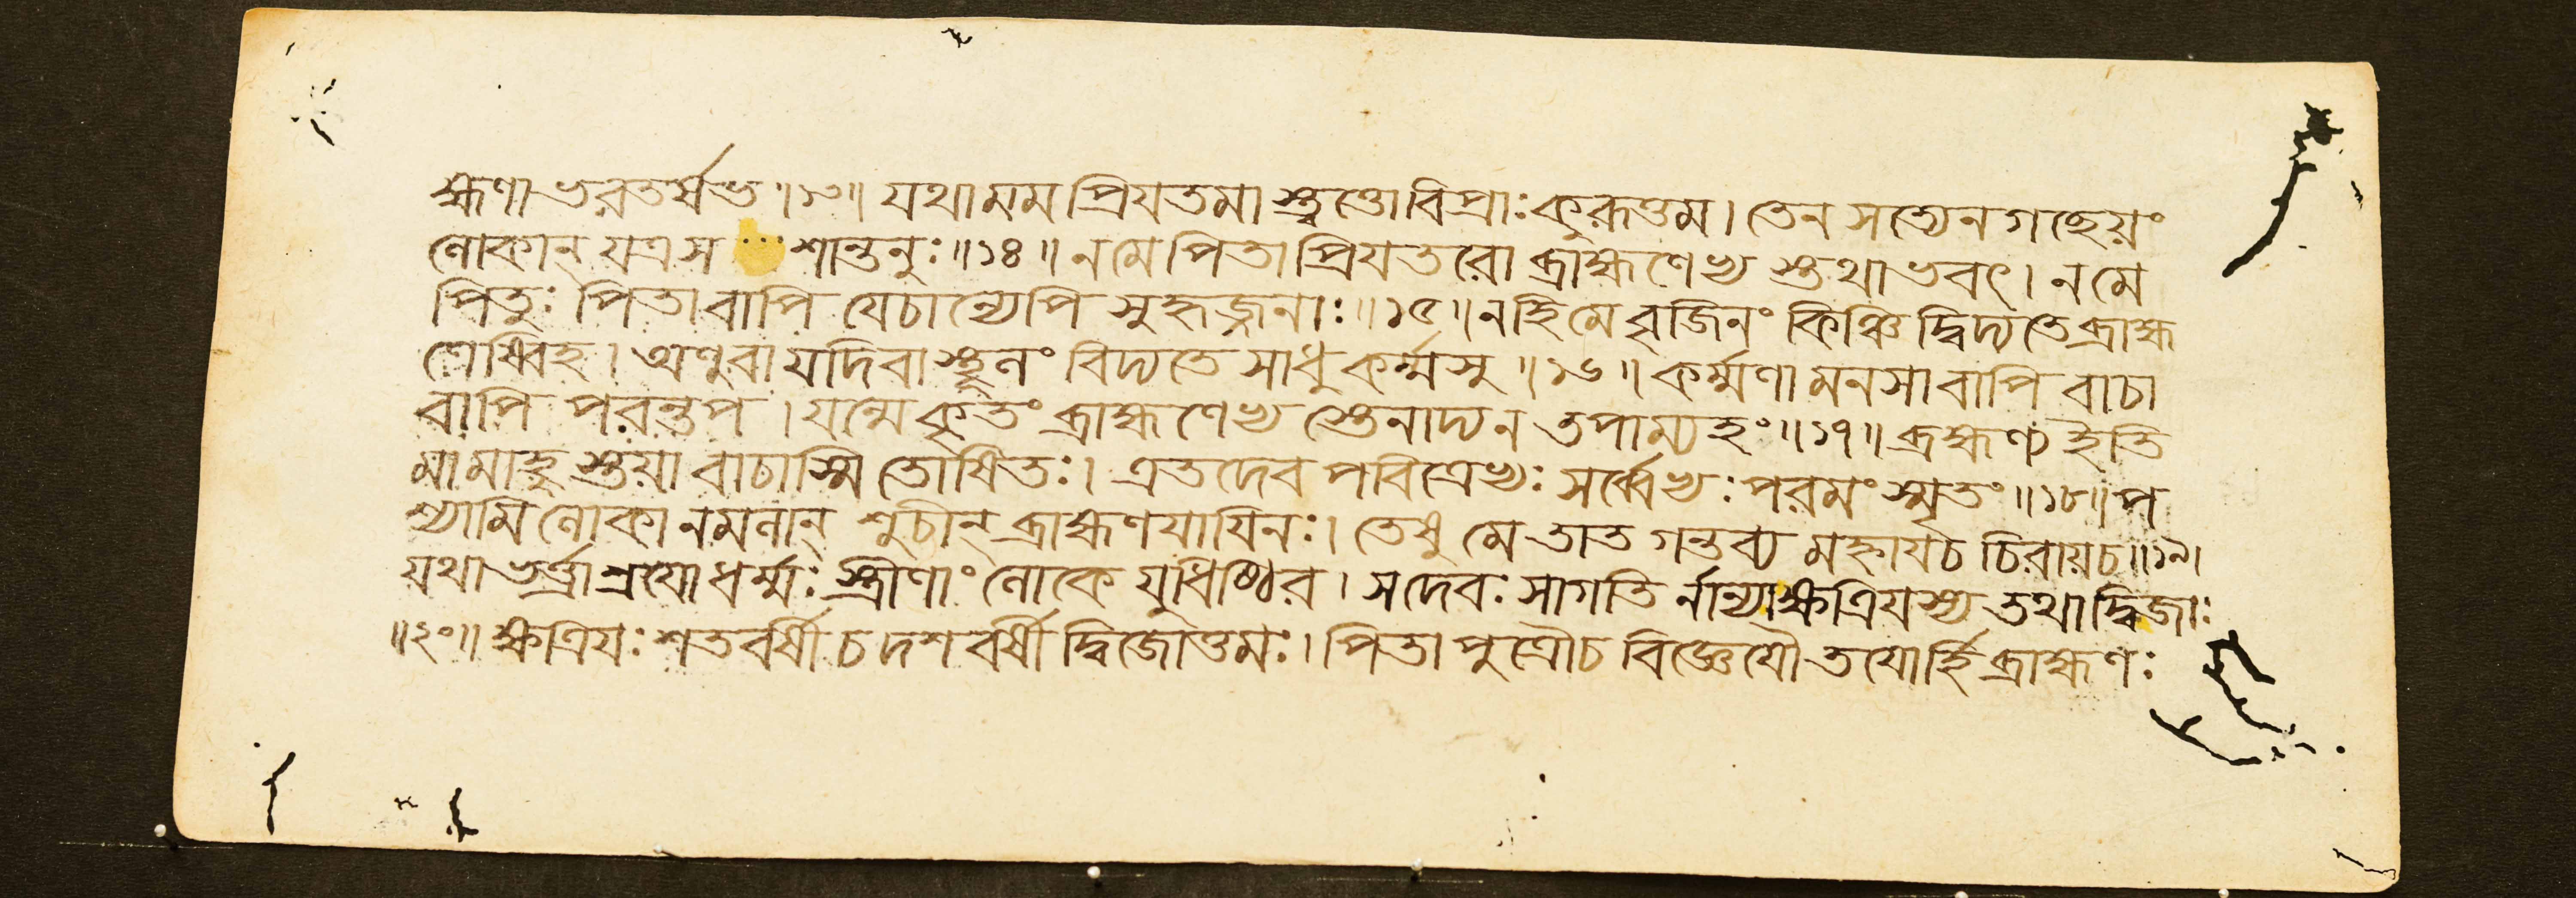 হ্মণা ভরতর্ষভ ॥১৩॥ যথা মম প্রিযতমা স্ত্বত্তো বিপ্রাঃ কুরূত্তম । তেন সত্যেন গচ্ছেয়ং
লোকান্ যত্র স শান্তনুঃ ॥১৪॥ ন মে পিতা প্রিযতরো ব্রাহ্মণেভ্য স্তথাভবৎ । ন মে
পিতুঃ পিতা বাপি যেচান্যেপি সুহৃজ্জনাঃ ॥১৫॥ নহি মে বৃজিনং কিঞ্চি দ্বিদ্যতে ব্রাহ্ম
ণেষ্বিহ । অণুবা যদিবা স্থূলং বিদ্যতে সাধুকর্ম্মসু ॥১৬॥ কর্ম্মণা মনসা বাপি বাচা
বাপি পরন্তপ । যন্মে কৃতং ব্রাহ্মণেভ্য স্তেনাদ্য ন তপাম্যহং ॥১৭॥ ব্রহ্মণ্য ইতি
মামাহু স্তয়া বাচাস্মি তোষিতঃ । এতদেব পবিত্রেভ্যঃ সর্ব্বেভ্যঃ পরমং স্মৃতং ॥১৮॥ প
শ্যামি লোকানমলান্ শুচীন্ ব্রাহ্মণযাযিনঃ । তেষু মে তাত গন্তব্য মহ্নাযচ চিরায়চ ॥১৯।
যথা ভর্ত্রাশ্রযো ধর্ম্মঃ স্ত্রীণাং লোকে যুধিষ্ঠির । সদেবঃ সাগতি র্নান্যা ক্ষত্রিযস্য তথা দ্বিজাঃ
॥২০॥ ক্ষত্রিযঃ শতবর্ষী চ দশবর্ষী দ্বিজোত্তমঃ । পিতা পুত্রৌচ বিজ্ঞেযৌ তযোর্হি ব্রাহ্মণঃ